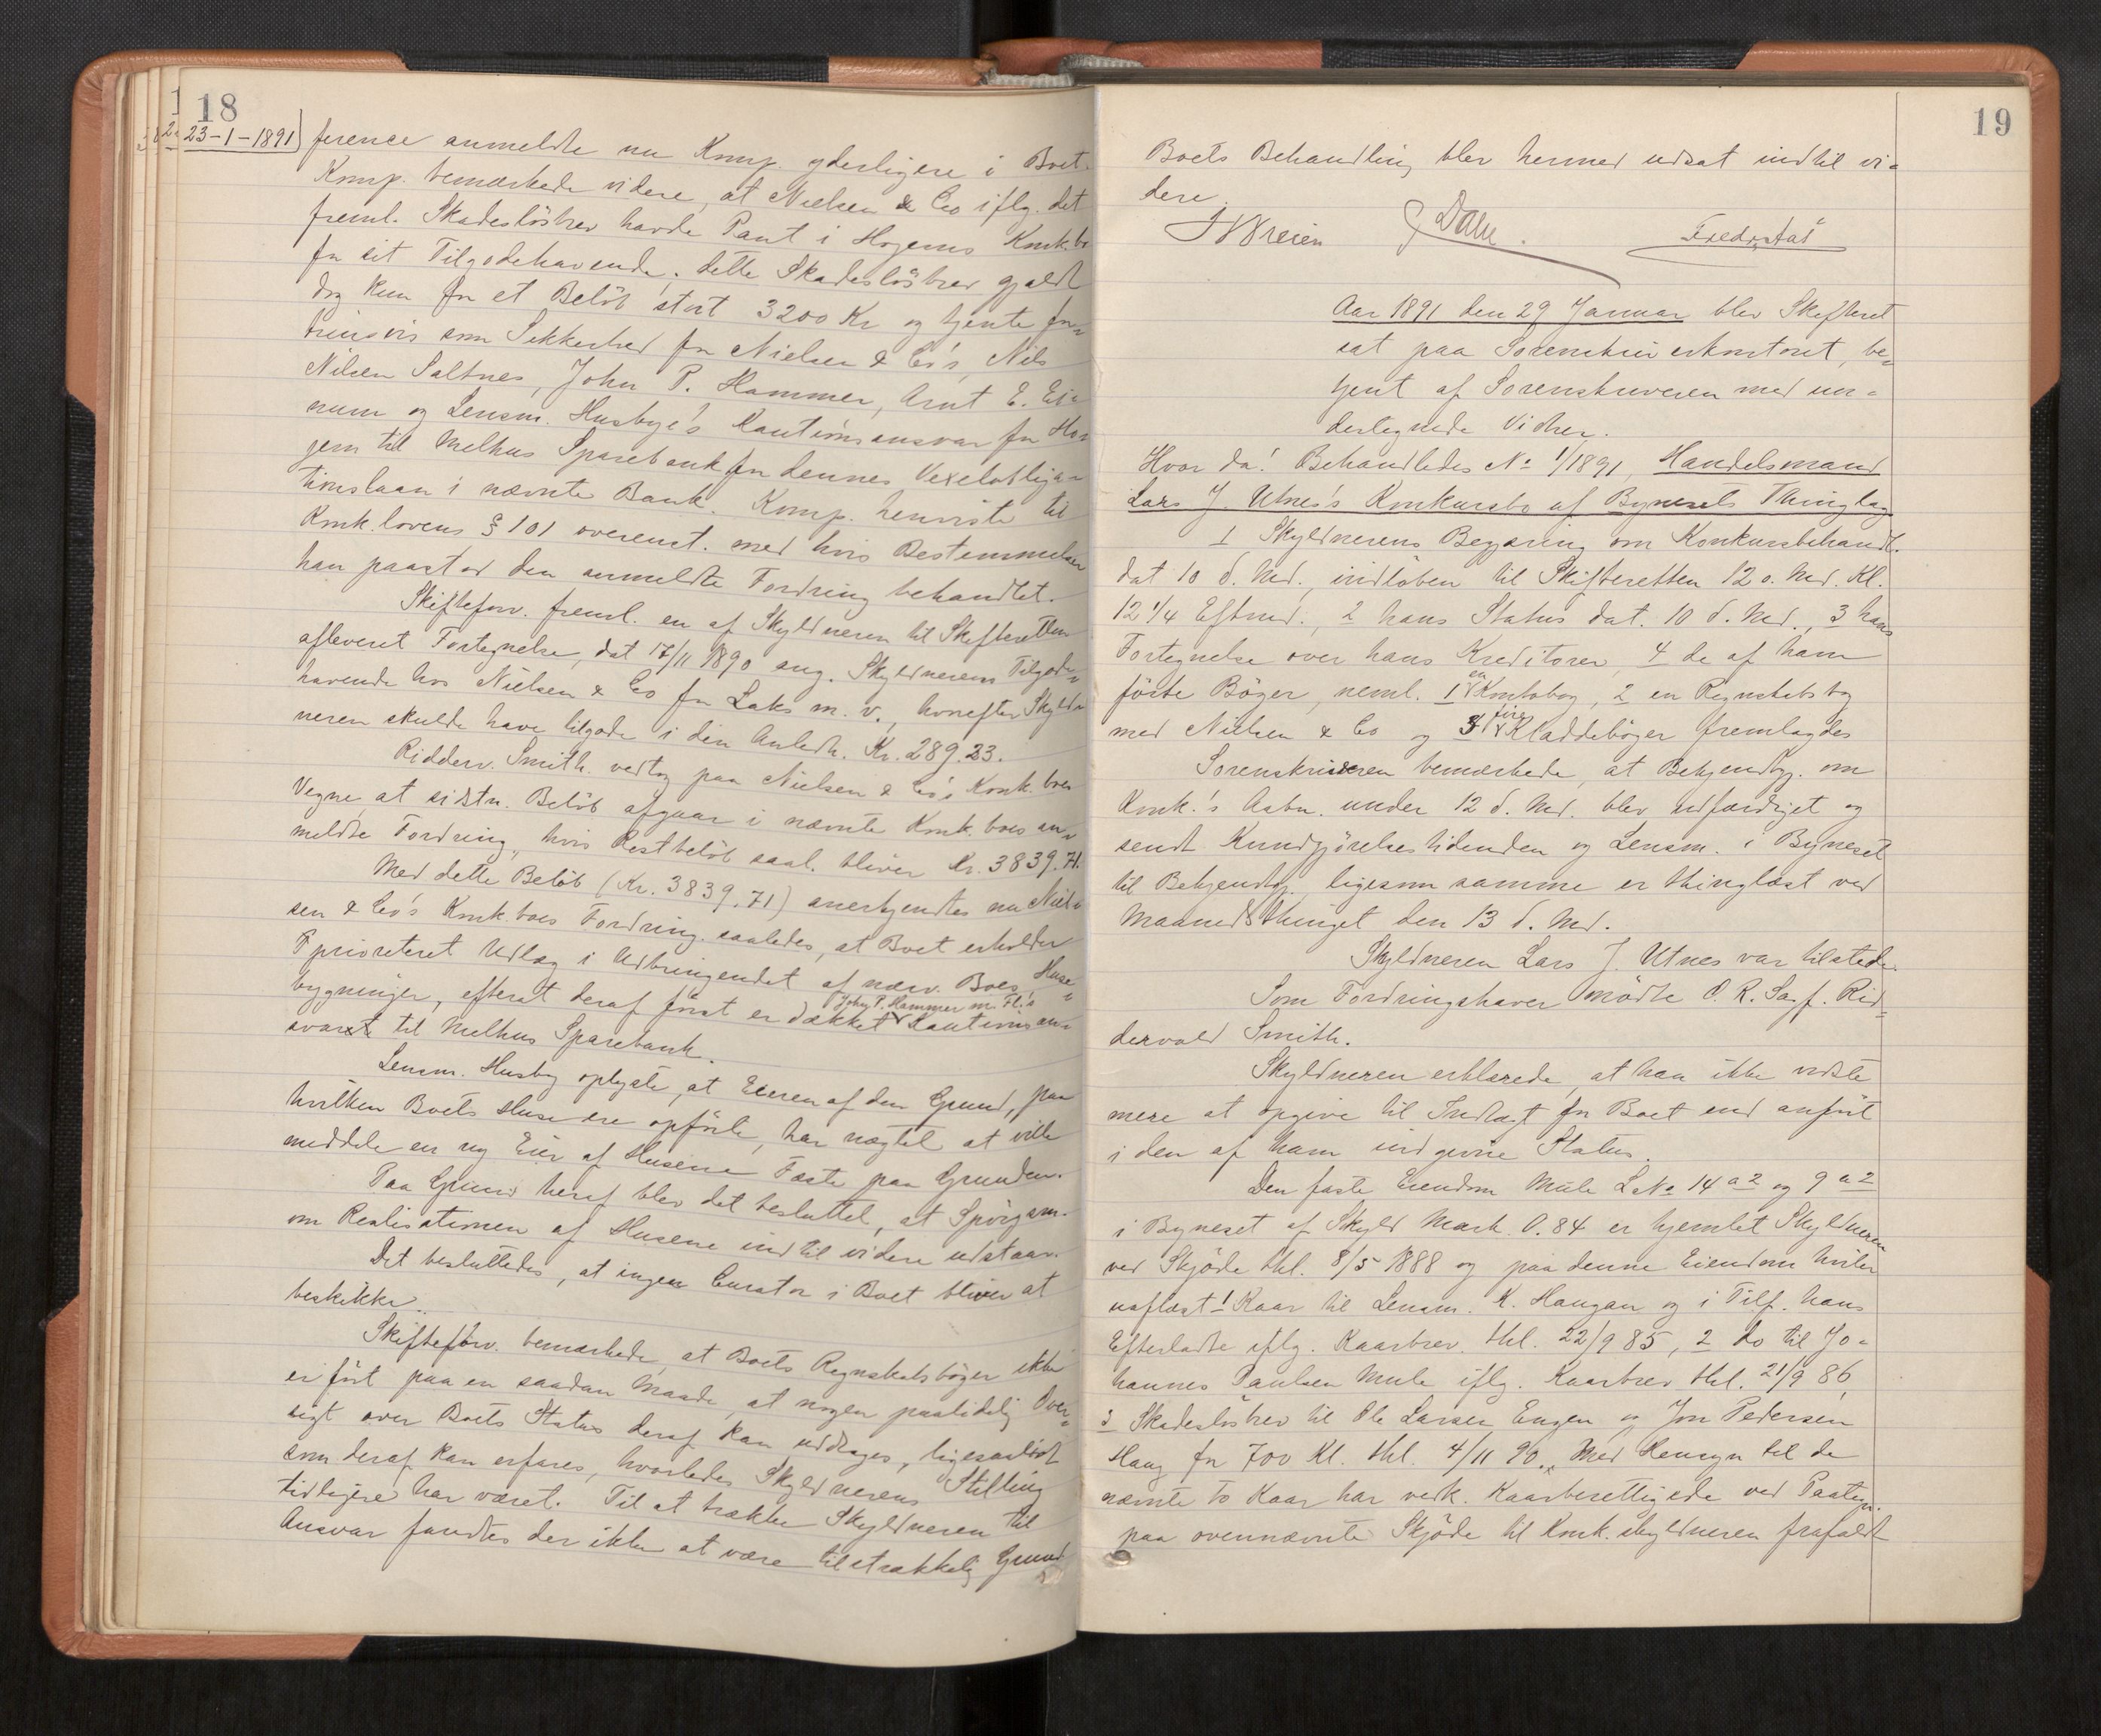 18
23-1-1891
ference anmeldte nu Komp. yderligere i Boet.
Komp. bemærkede videre, at Nielsen & Co iflg. det
freml. Skadeslösbrev havde Pant i Hogems Konk.bo
for sit Tilgodehavende; dette Skadeslösbrev gjaldt
dog kun for et Belöb stort 3200 Kr og tjente for-
trinsvis som Sikkerhed for Nielsen & Co's, Nils
Nilsen Saltnes, John P. Hammer, Arnt E. Ei-
num og Lensm. Husbye's Kautionsansvar for Ho-
gem til Melhus Sparebank for dennes Vexelobliga-
tionslaan i nævnte Bank. Komp. henviste til
Konk.lovens § 101 overenst. med hvis Bestemmelser
han paastod den anmeldte Fordring behandlet.
Skifteforv. freml. en af Skyldneren til Skifteretten
afleveret Fortegnelse, dat 17/11 1890 ang. Skyldnerens Tilgode-
havende hos Nielsen & Co for Laks m. v., hvorefter Skyld-
neren skulde have tilgode i den Anledn. Kr. 289.23.
Ridderv. Smith vedtog paa Nielsen & Co's Konk.boes
Vegne, at sidstn. Belöb afgaar i nævnte Konk.boes an-
meldte Fordring, hvis Restbelöb saal. bliver Kr. 3839.71.
Med dette Belöb (Kr. 3839.71) anerkjendtes nu Niel-
sen & Co's Konk.boes Fordring saaledes, at Boet erholder
prioriteret Udlæg i Udbringendet af nærv. Boes Huse-
bygninger, efterat deraf först er dækket John P. Hammer m. Fl.'s Kautionsan-
svaret til Melhus Sparebank.
Lensm. Husby oplyste, at Eieren af den Grund, paa
hvilken Boets Huse ere opförte, har nægtet at ville
meddele en ny Eier af Husene Fæste paa Grunden.
Paa Grund heraf blev det besluttet, at Spörgsm.
om Realisationen af Husene indtil videre udstaar.
Det besluttedes, at ingen Curator i Boet bliver at
beskikke.
Skifteforv. bemærkede, at Boets Regnskabsböger ikke
er fört paa en saadan Maade, at nogen paalidelig Over-
sigt over Boets Status deraf kan uddrages, ligesaalidt
som deraf kan erfares, hvorledes Skyldnerens Stilling
tidligere har været. Til at trække Skyldneren til
Ansvar fandtes der ikke at være tilstrækkelig Grund
19
Boets Behandling blev hermed udsat indtil vi-
dere.
Dahl
Aar 1891 den 29 Januar blev Skifteret
sat paa Sorenskriverkontoret, be-
tjent af Sorenskriveren med un-
dertegnede Vidner.
Hvor da! Behandledes No 1/1891, Handelsmand
Lars J. Utnes's Konkursbo af Bynesets Thinglag
1 Skyldnerens Begjæring om Konkursbehandl.
dat 10 d. Md., indloben til Skifteretten 12 s. Md. Kl.
12 1/4 Eftmd., 2 hans Status dat. 10 d. Md., 3 hans
Fortegnelse over hans Kreditorer, 4 de af ham
förte Böger, neml. 1 en Kontobog, 2 en Regnskabsbog
med Nielsen & Co og 3 fire Kladdeböger fremlagdes
Sorenskriveren bemærkede, at Bekjendtg. om
Konk.'s Aabn. under 12 d. Md. blev udfærdiget og
sendt Kundgjörelsestidenden og Lensm. i Byneset
til Bekjendtg. ligesom samme er thinglæst ved
Maanedsthinget den 13 d. Md.
Skyldneren Lars J. Utnes var tilstede.
Som Fordringshaver mödte O. R. Sagf. Rid-
dervold Smith.
Skyldneren erklærede, at han ikke vidste
mere at opgive til Indtægt for Boet end anfört
i den af ham indgivne Status.
Den faste Eiendom Mule L.No 14 a 2 og 9 a 2
i Byneset af Skyld Mark 0.84 er hjemlet Skyldneren
ved Skjöde thl. 8/5 1888 og paa denne Eiendom hviler
uaflæst 1 Kaar til Lensm. K. Haugan og i Tilf. hans
Efterladte iflg. Kaarbrev thl. 22/9 85, 2 do til Jo-
hannes Paulsen Mule iflg. Kaarbrev thl. 21/9 86,
3 Skadeslösbrev til Ole Larsen Engen og Jon Pedersen
Haug for 700 Kr. thl. 4/11 90. Med Hensyn til de
nævnte to Kaar har vedk. Kaarberettigede ved Paategn.
paa ovennævnte Skjöde til Konk.skyldneren frafaldt